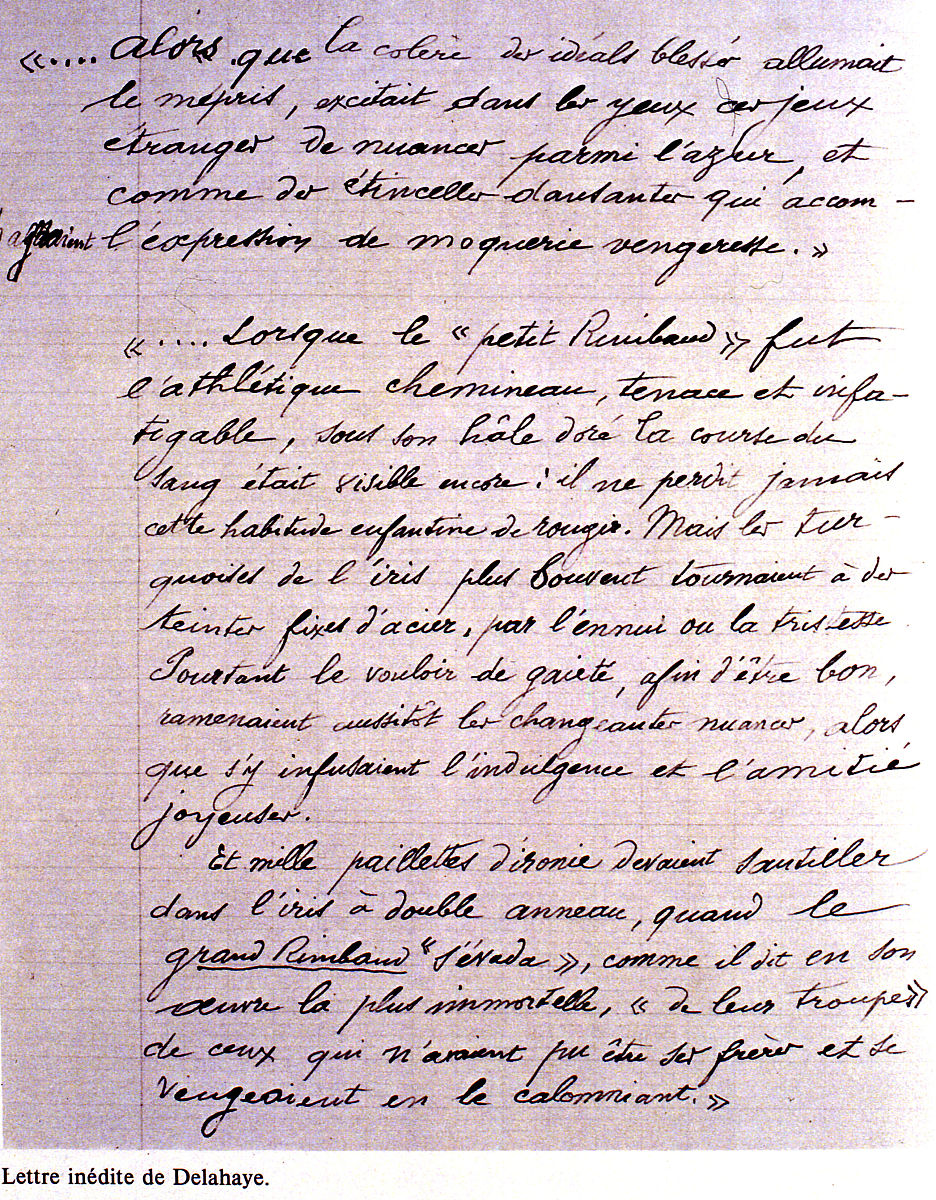 «.... alors que la colère des idéals blessés allumait
le mépris, excitait dans les yeux des jeux
étranges de nuances parmi l'azur, et
comme des étincelles dansantes qui accom-
pagnaient l'expression de moquerie vengeresse. »
« .... Lorsque le « petit Rimbaud » fut
l'athlétique chemineau, tenace et infa-
tigable, sous son hâle doré la course du
sang était visible encore : il ne perdit jamais
cette habitude enfantine de rougir. Mais les tur-
quoises de l'iris plus souvent tournaient à des
teintes fixes d'acier, par l'ennui ou la tristesse.
Pourtant le vouloir de gaieté, afin d'être bon,
ramenaient aussitôt les changeantes nuances, alors
que s'y infusaient l'indulgence et l'amitié
joyeuses.
Et mille paillettes d'ironie devaient sautiller
dans l'iris à double anneau, quand le
grand Rimbaud « s'évada », comme il dit en son
œuvre la plus immortelle, « de leurs troupes »
de ceux qui n'avaient pu être ses frères et se
vengeaient en le calomniant. »
Lettre inédite de Delahaye.